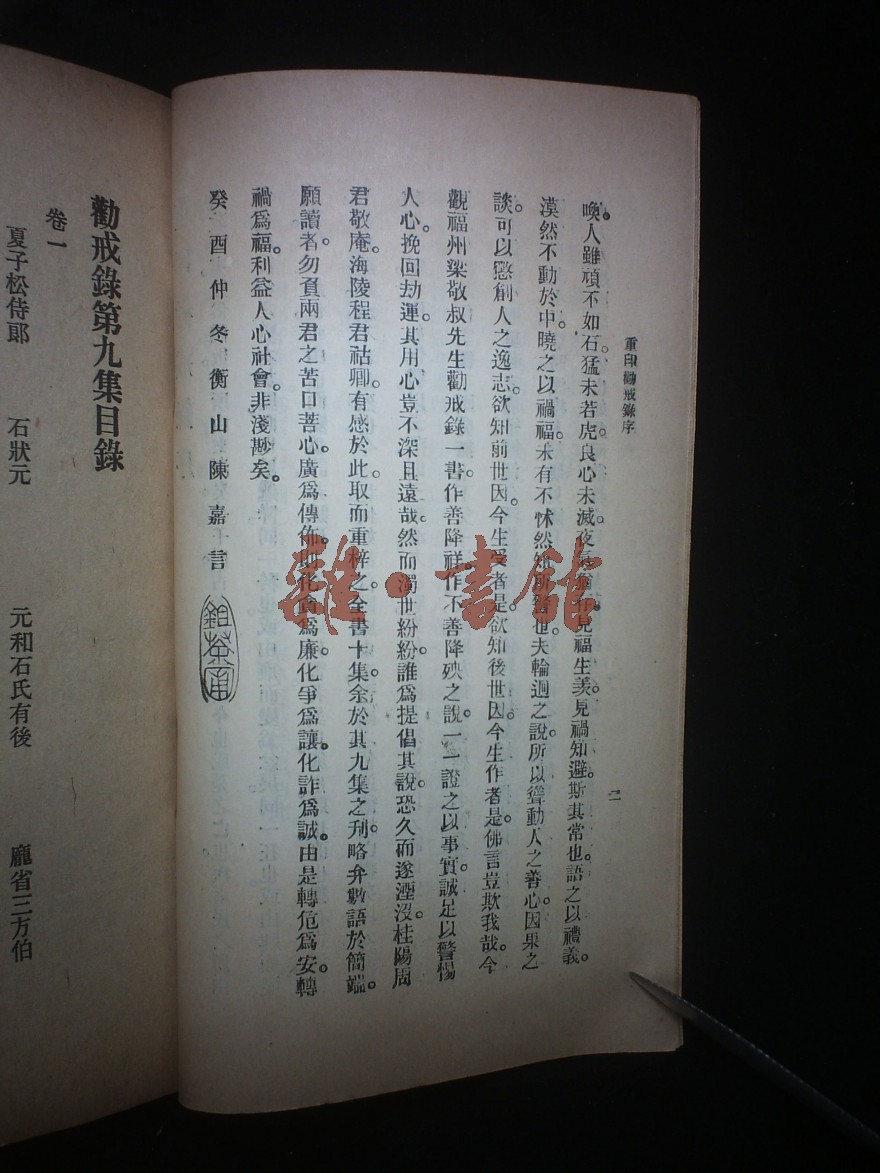 重印勸戒錄序
二
喚人雖頑不如石猛未若虎良心未滅夜氣猶存見福生羨見禍知避斯其常也語之以禮義
漠然不動於中曉之以禍福未有不怵然知所警也夫輪迴之說所以聳動人之善心因果之
談可以懲創人之逸志欲知前世因今生受者是欲知後世因今生作者是佛言豈欺我哉今
觀福州梁敬叔先生勸戒錄一書作善降祥作不善降殃之說一一證之以事實誠足以警惕
人心挽回劫運其用心豈不深且遠哉然而濁世紛紛誰爲提倡其說恐久而遂湮沒桂陽周
君敬庵海陵程君祜卿有感於此取而重梓之全書十集余於其九集之刋略弁數語於簡端
願讀者勿負兩君之苦口菩心廣爲傳佈則化貪爲廉化爭爲讓化詐爲誠由是轉危爲安轉
禍爲福利益人心社會非淺尠矣
癸酉仲冬衡山陳嘉言
勸戒錄第九集目錄
卷一
夏子松侍郎 石狀元 元和石氏有後 龐省三方伯
雜·書館